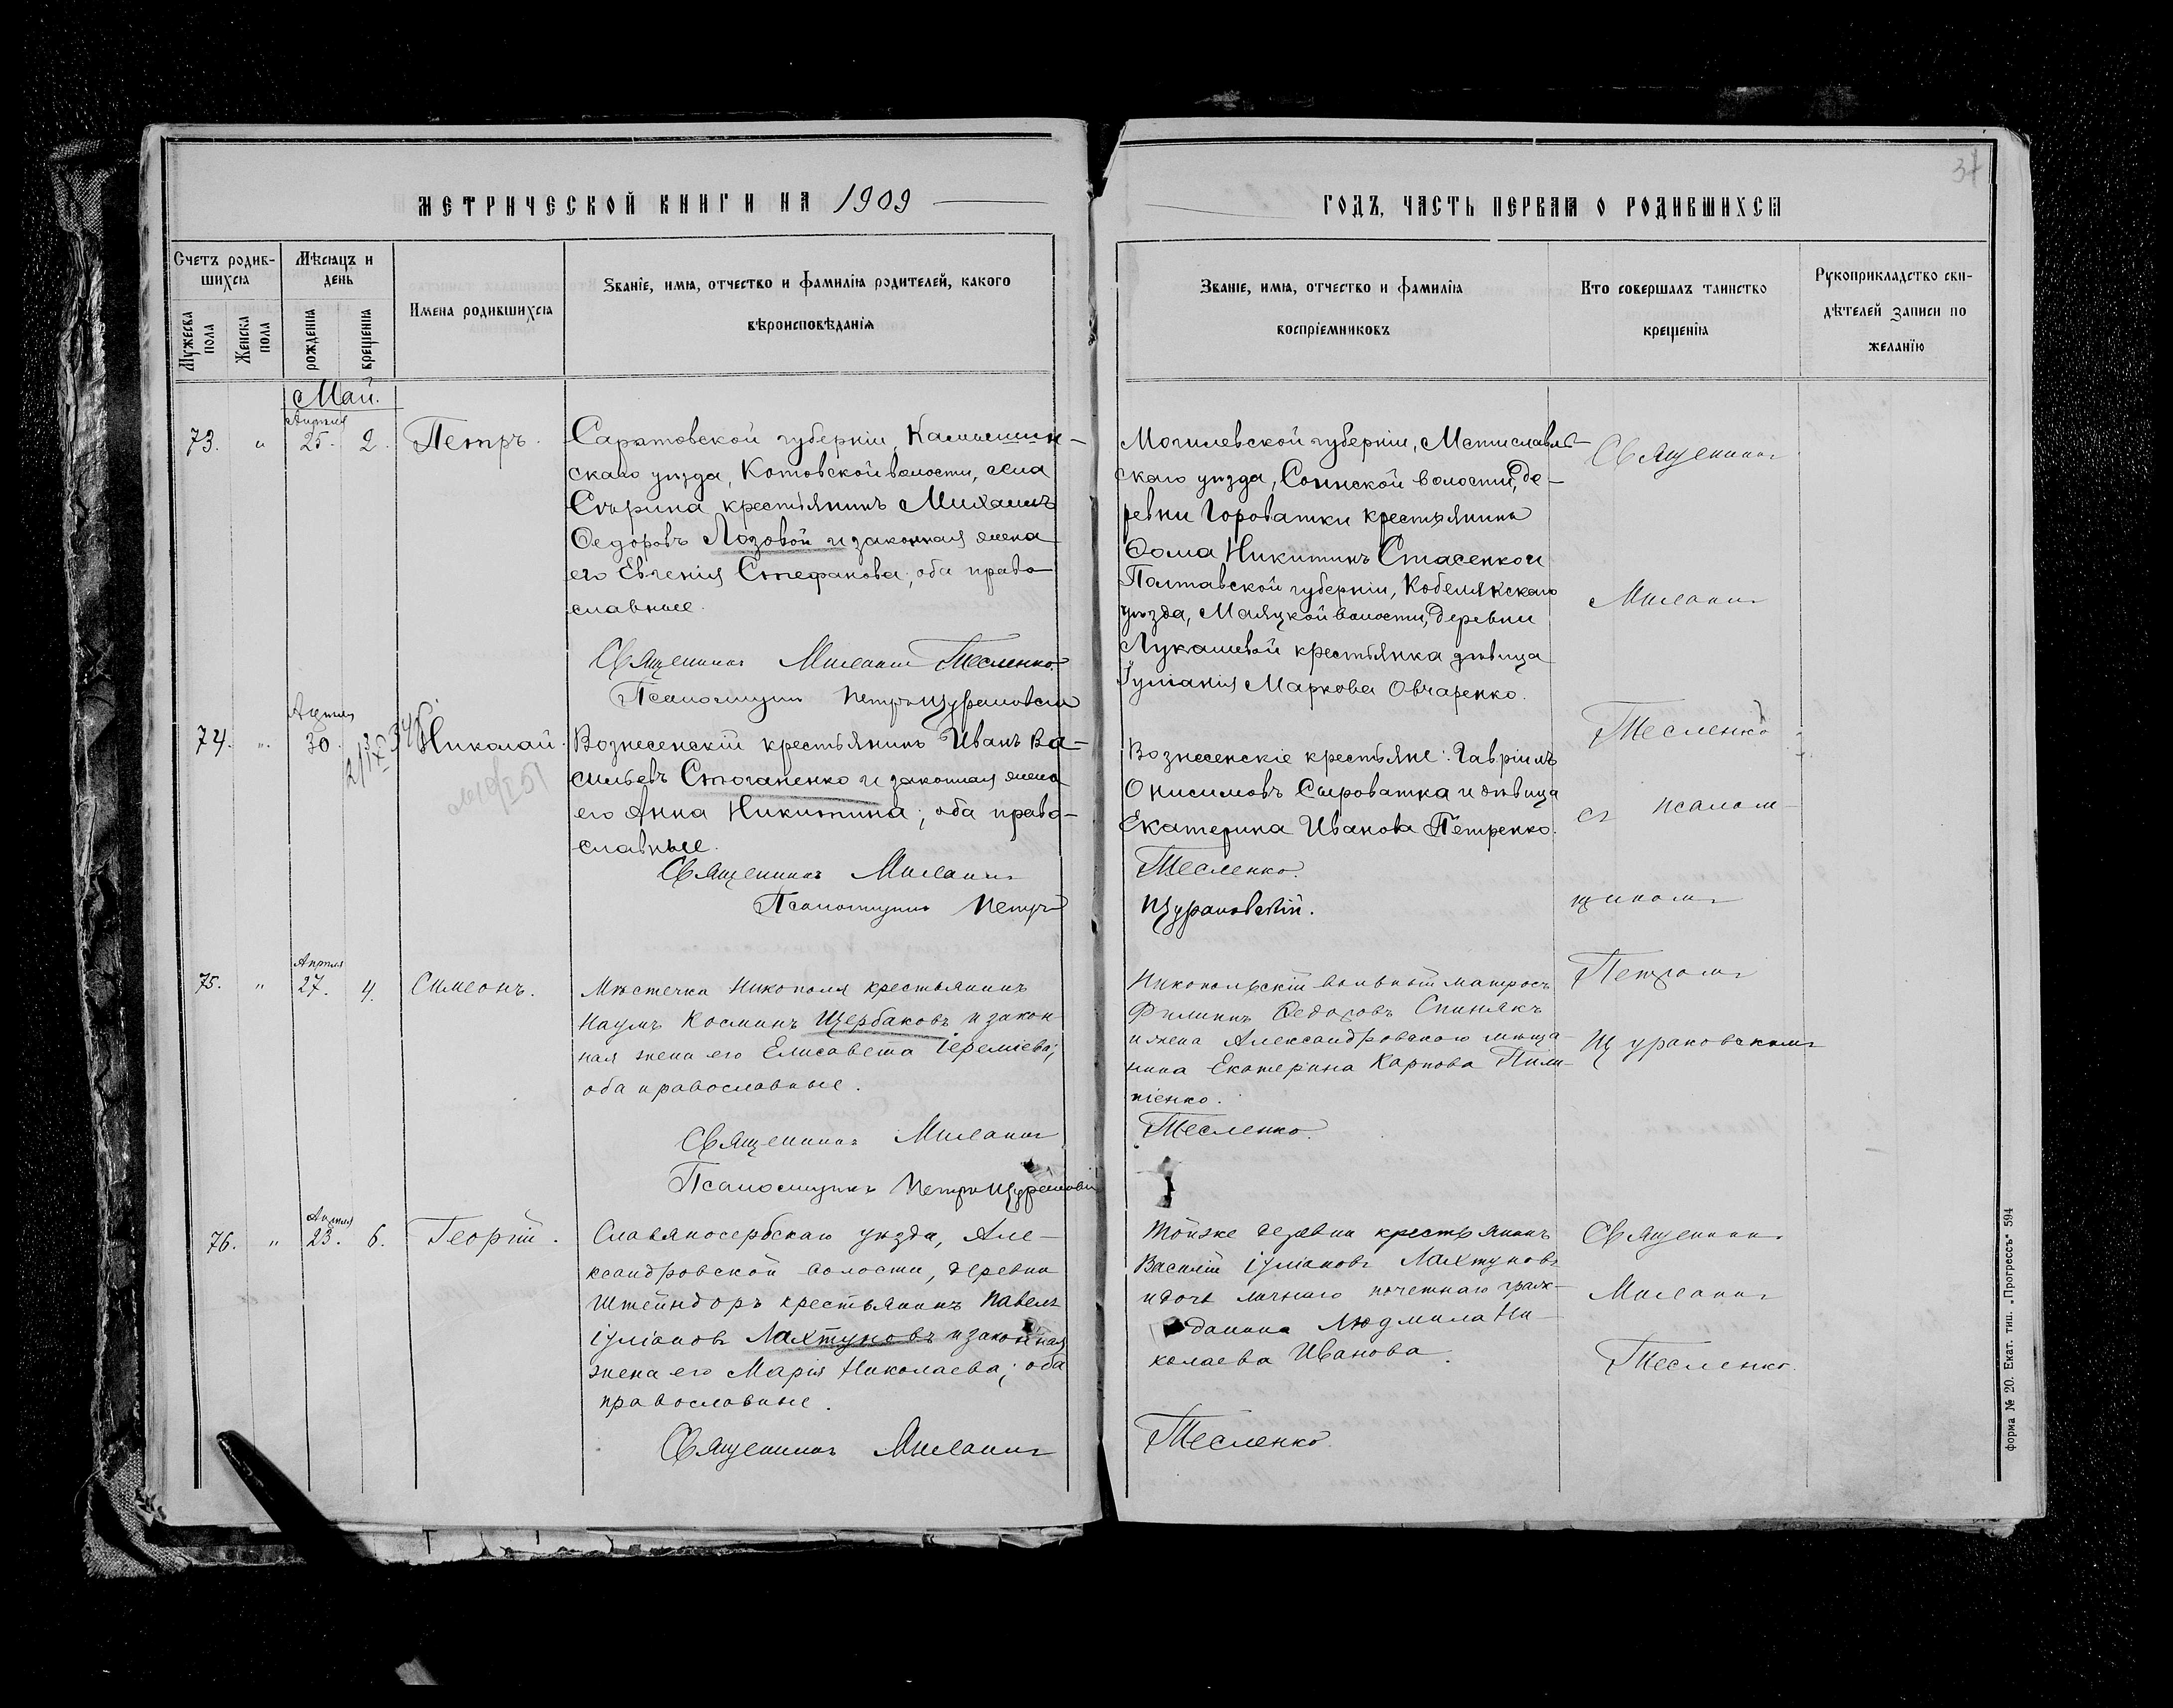 МЕТРИЧЕСКОЙ КНИГИ НА 1909
Счетъ родив-
шихся
Мѣсяцъ и
день
Имена родившихся
Званіе, имя, отчество и фамилія родителей, какого
вѣроисповѣданія
Мужеска
пола
Женска
пола
рожденія
крещенія
Май.
73. " Апрѣля 25. 2. Петръ.
Саратовской губерніи, Камышин-
скаго уѣзда, Котовской волости, села
крестьянинъ Михаилъ
Ѳедоровъ Лозовой и законная жена
его Евгенія Стефанова; оба право
славные.
Священникъ Тесленко
Псаломщикъ Петръ
74. " Апрѣля 30. 3 Николай.
Вознесенскій крестьянинъ Иванъ Ва-
сильевъ Стоганенко и законная жена
его Анна Никитина; оба право-
славные.
Священникъ
Псаломщикъ Петръ
75. " Апрѣля 27. 4. Симеонъ.
Мѣстечка Никополя крестьянинъ
Наумъ Косминъ Щербаковъ и закон
ная жена его Елисавета Іереміева;
оба православные.
Священникъ
Псаломщикъ Петръ
76. " Апрѣля 23. 6. Георгій.
Славяносербскаго уѣзда, Але-
ксандровской волости, деревни
Штейндоръ крестьянинъ Павелъ
Іуліановъ Лахтуновъ и законная
жена его Марія Николаева; оба
православные.
Священникъ
ГОДЪ, ЧАСТЬ ПЕРВАЯ О РОДИВШИХСЯ
Званіе, имя, отчество и фамилія
воспріемниковъ
Кто совершалъ таинство
крещенія
Рукоприкладство сви-
дѣтелей записи по
желанію
Могилевской губерніи, Мстиславль-
скаго уѣзда, волости, де-
ревни Гороватки крестьянинъ
Ѳома Никитинъ Стасенко и
Полтавской губерніи, Кобелякскаго
уѣзда, Маляцкой волости, деревни
Лукашевой крестьянка дѣвица
Іуліанія Маркова Овчаренко.
Вознесенскіе крестьяне: Гавріилъ
Онисимовъ Сыроватка и дѣвица
Екатерина Иванова Петренко.
Тесленко.
Щурановскій.
Никопольскій вольный матросъ
Филиппъ Ѳедоровъ Спинякъ
и жена Александровскаго мѣща-
нина Екатерина Карпова Пили-
піенко.
Тесленко.
Тойже деревни крестьянинъ
Василій Іуліановъ Лахтуновъ
и дочь личнаго почетнаго граж-
данина Людмила Ни-
колаева Иванова.
Тесленко
Священникъ
Тесленко
съ псалом-
щикомъ
Петромъ
Священникъ
Тесленко.
форма № 20. Екат. тип. „Прогрессъ“ 594